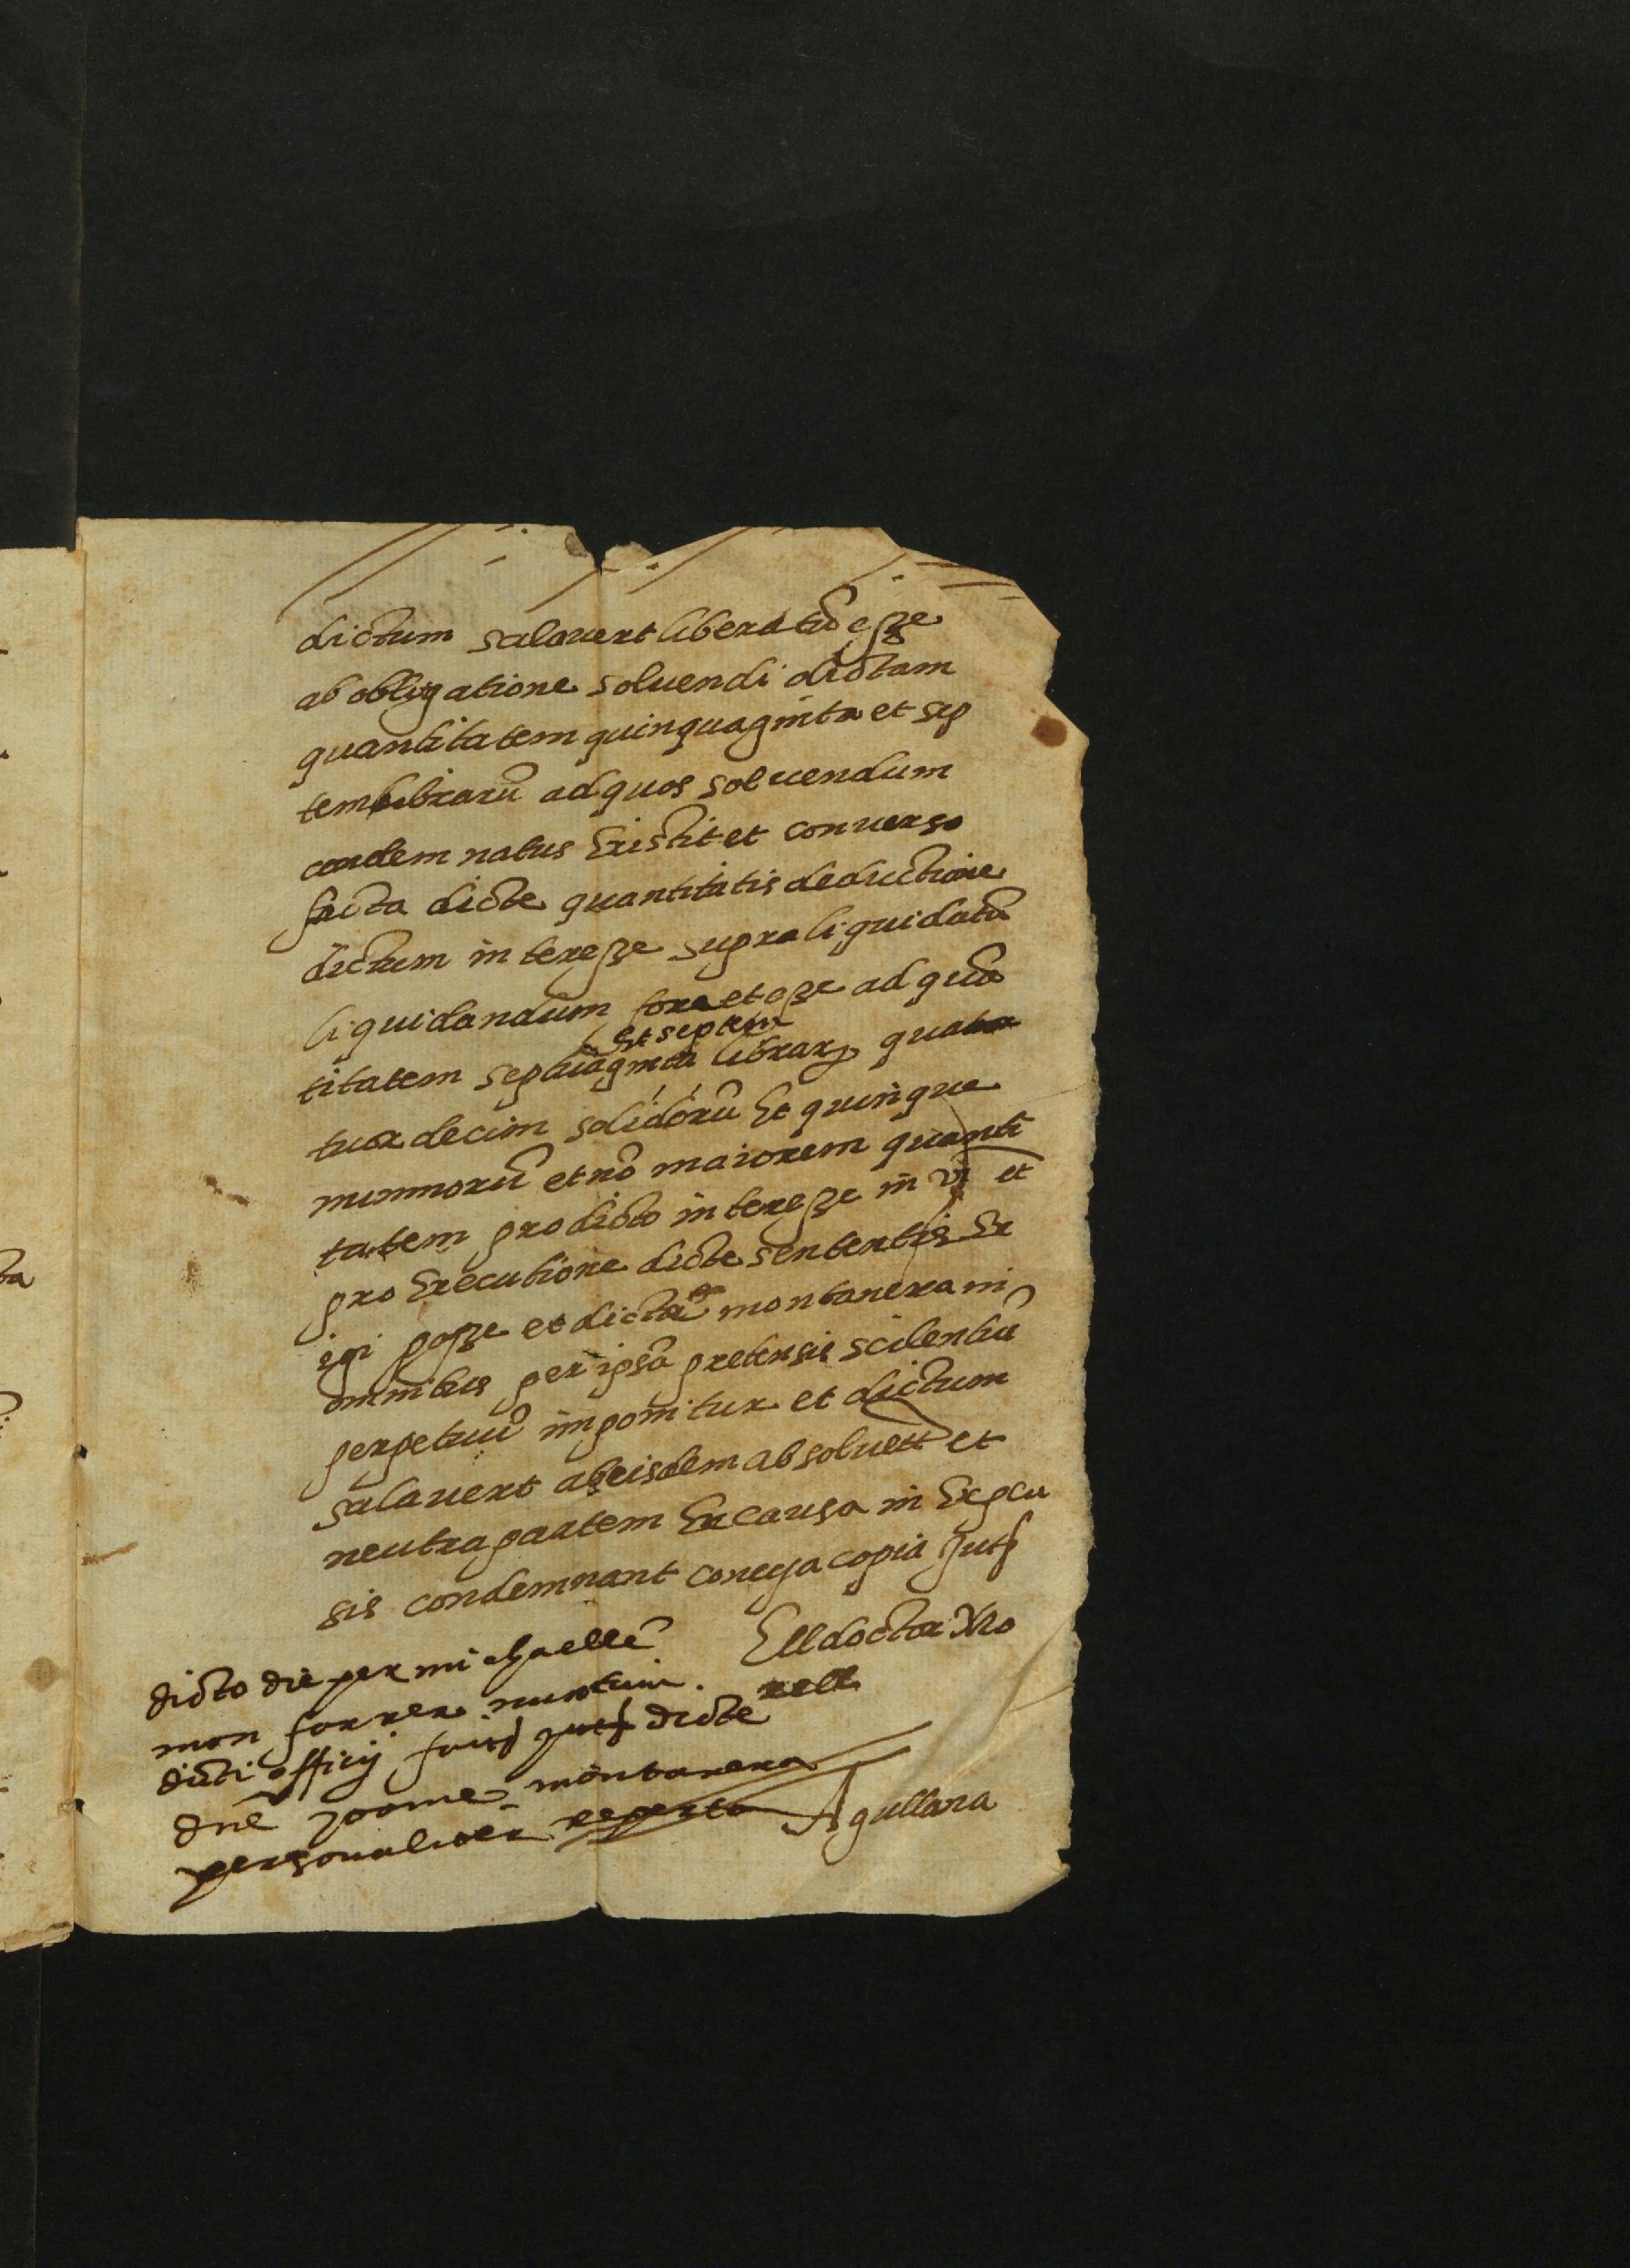 dictum salavert liberatũ esse
ab obligatione solvendi dictam
quantitatem quinquaginta et sep
tem librarũ ad quos solvendum
condemnatus Existit et converso
facta dicte quantitatis deductione
dictum interesse supra liquidatũ
liquidandum fore et esse ad quã
et septem
titatem septuaginta librarũ quatu
tuor decim solidorũ Et quinque
numorũ et nõ maiorem quanti
tatem pro dicto interesse in vi et
pro Executione dicte sententie Ex
igi posse et dictã montanera in
omnibus per ipsã pretensis scilentiũ
perpetuũ imponitur et dictum
salavert ab eisdem absolvett et
neutra partem Ex causa in Expen
sis condemnant conega copia Jutf
Ell doctor Mo
rell
dicto die per michaellẽ
mon forrer nuntium.
dicti officij fuit dicte
dnẽ Joanne montanera
personaliter reperta
Agullana